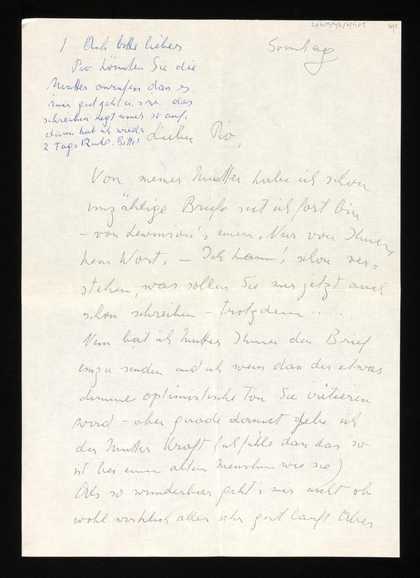 Sonntag
1 Ach bitte lieber
Pio könnten Sie die
Mutter anrufen das es
mir gut geht u. s.w. das
schreiben regt immer so auf,
dann hat ich wieder
2 Tage Ruh. Bitte!
Lieber Pio,
Von meiner Mutter habe ich schon
unzählige Briefe seit ich fort bin
– von einen. Nur von Ihnen
kein Wort. – Ich kann's schon ver-
stehen, was sollen Sie mir jetzt auch
schon schreiben – trotzdem . . . .
Nun hat ich Mutter Ihnen den Brief
zu senden und ich weis das der etwas
dumme optimistische Ton Sie irritieren
wird – aber gerade damit gebe ich
der Mutter Kraft (ich fühle das das so
ist bei einem alten Menschen wie sie)
Also so wunderbar geht's mir nicht ob
wohl wirklich alles sehr gut lauft